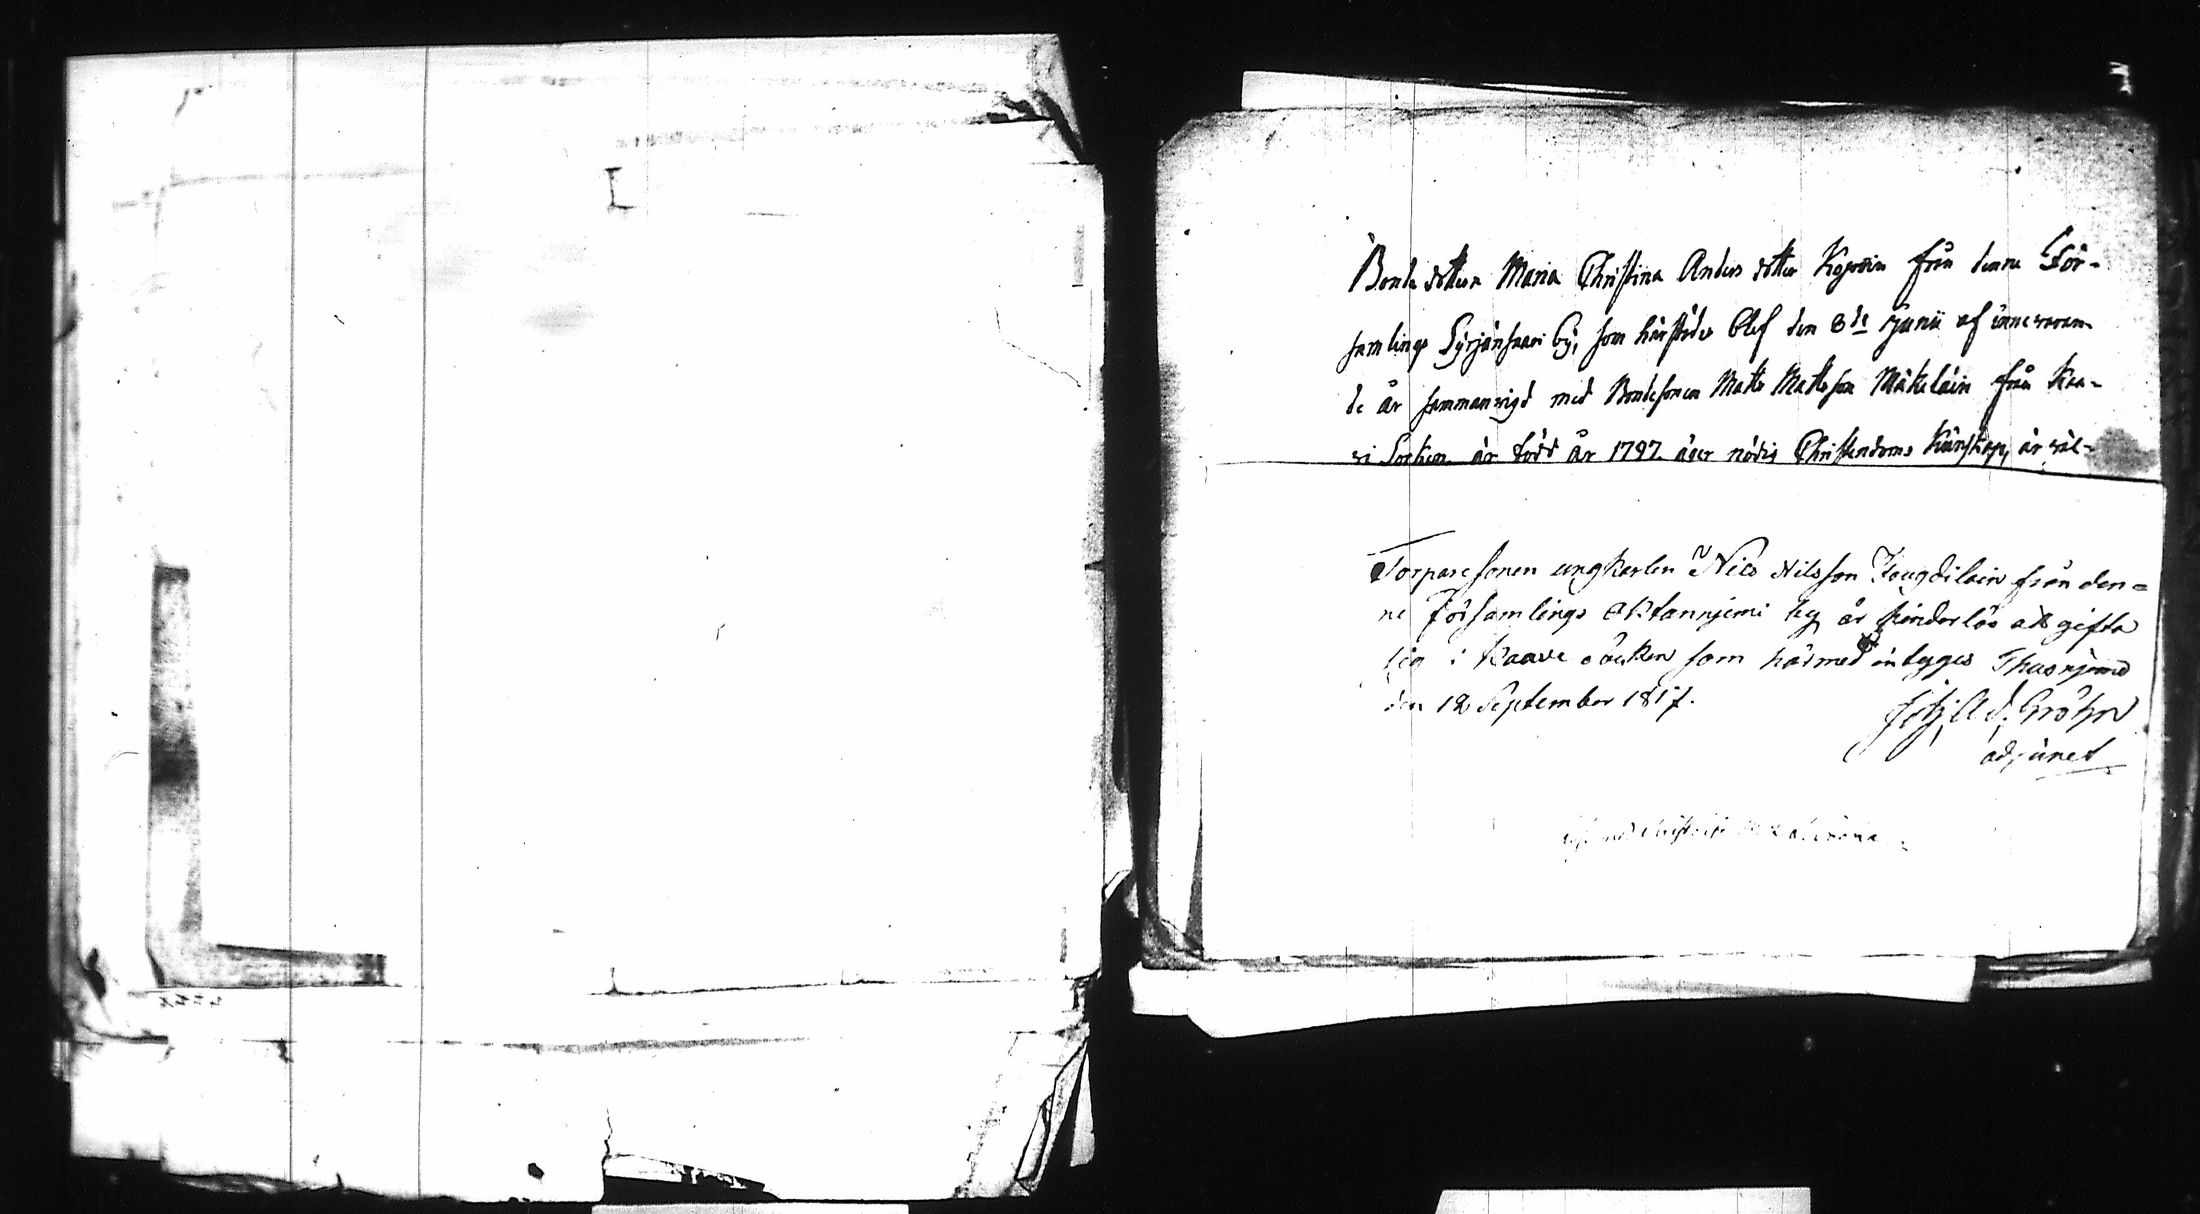 Bonde dottern Maria Christina Anders dotter Kyröin från denna För-
samlings Syrjänsaari by, som härstädes blef den 8de Junii af innevaran-
de år sammanvigd med Bondesonen Matts Mattsson Mäkeläin från Kaa-
vi Socken är född år 1797. äger nödig Christendoms kunskap, är väl-
Torparesonen ungkarlen Nils Nilsson från den=
ne Församlings by är hinderlös att gifta
sig i Kaavi Söcken som härmed intygas
den 18 September 1817.
Ad. Gröhn
adjunct